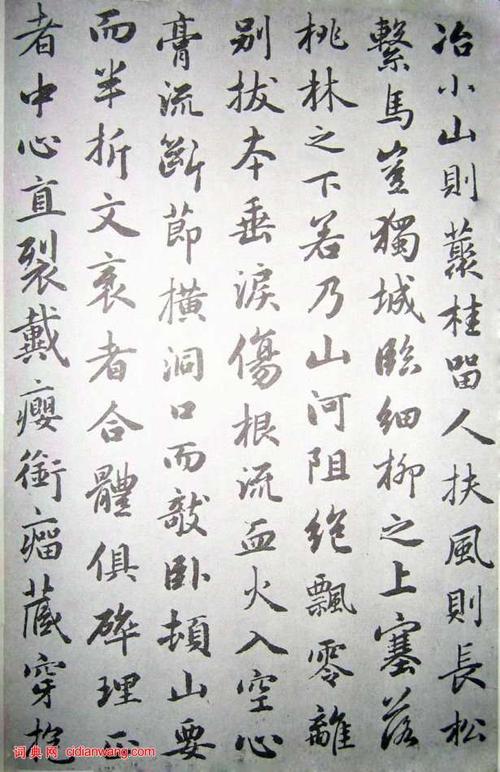 冶小山則藂桂留人扶風則長松
繫馬豈獨城臨細柳之上塞落
桃林之下若乃山河阻絕飄零離
別拔本垂淚傷根流血火入空心
膏流斷節橫洞口而敧臥頓山要
而半折文衺者合體俱碎理正
者中心直裂戴癭銜瘤藏穿抱
词典网 cidianwang.com